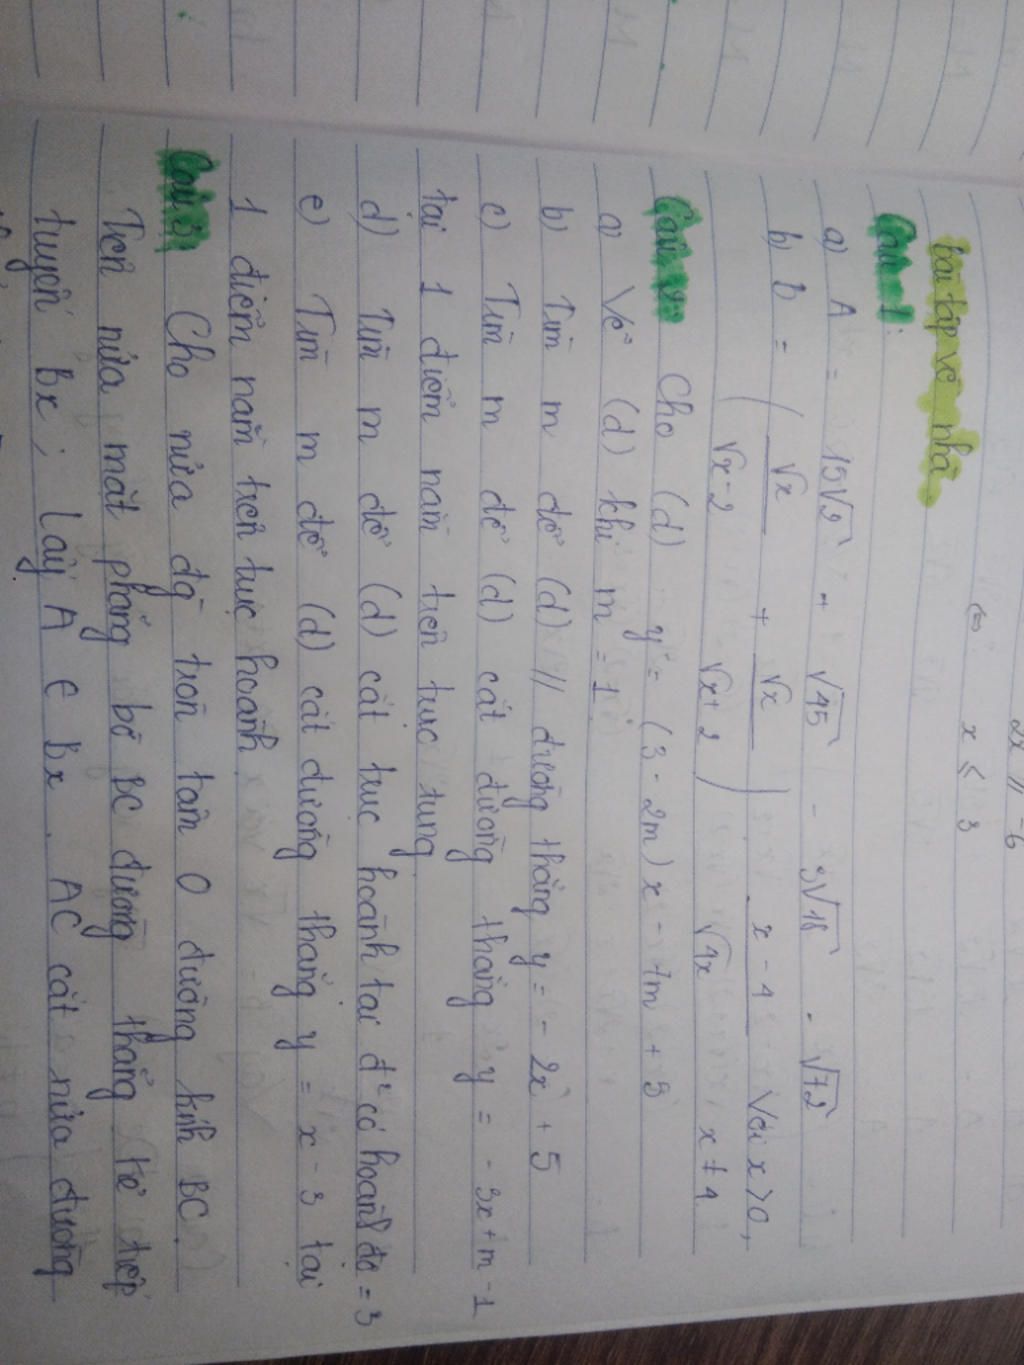 2x // -6
⇔ x ≤ 3
bài tập về nhà.
Câu 1:
a) A = 15√2 - √45 - 3√18 - √72
b) B = ( √x / √x-2 + √x / √x+2 ) x-4 / √4x Với x > 0, x ≠ 4
Câu 2: Cho (d) y = (3 - 2m) x - 7m + 3
a) Vẽ (d) khi m = 1
b) Tìm m để (d) // đường thẳng y = - 2x + 5
c) Tìm m để (d) cắt đường thẳng y = - 3x + m - 1
tại 1 điểm nằm trên trục tung
d) Tìm m để (d) cắt trục hoành tại đ² có hoành độ = 3
e) Tìm m để (d) cắt đường thẳng y = x - 3 tại
1 điểm nằm trên trục hoành.
Câu 3: Cho nửa đg tròn tâm O đường kính BC.
Trên nửa mặt phẳng bờ BC đường thẳng kẻ tiếp
tuyến Bx; Lấy A ∈ Bx. AC cắt nửa đường